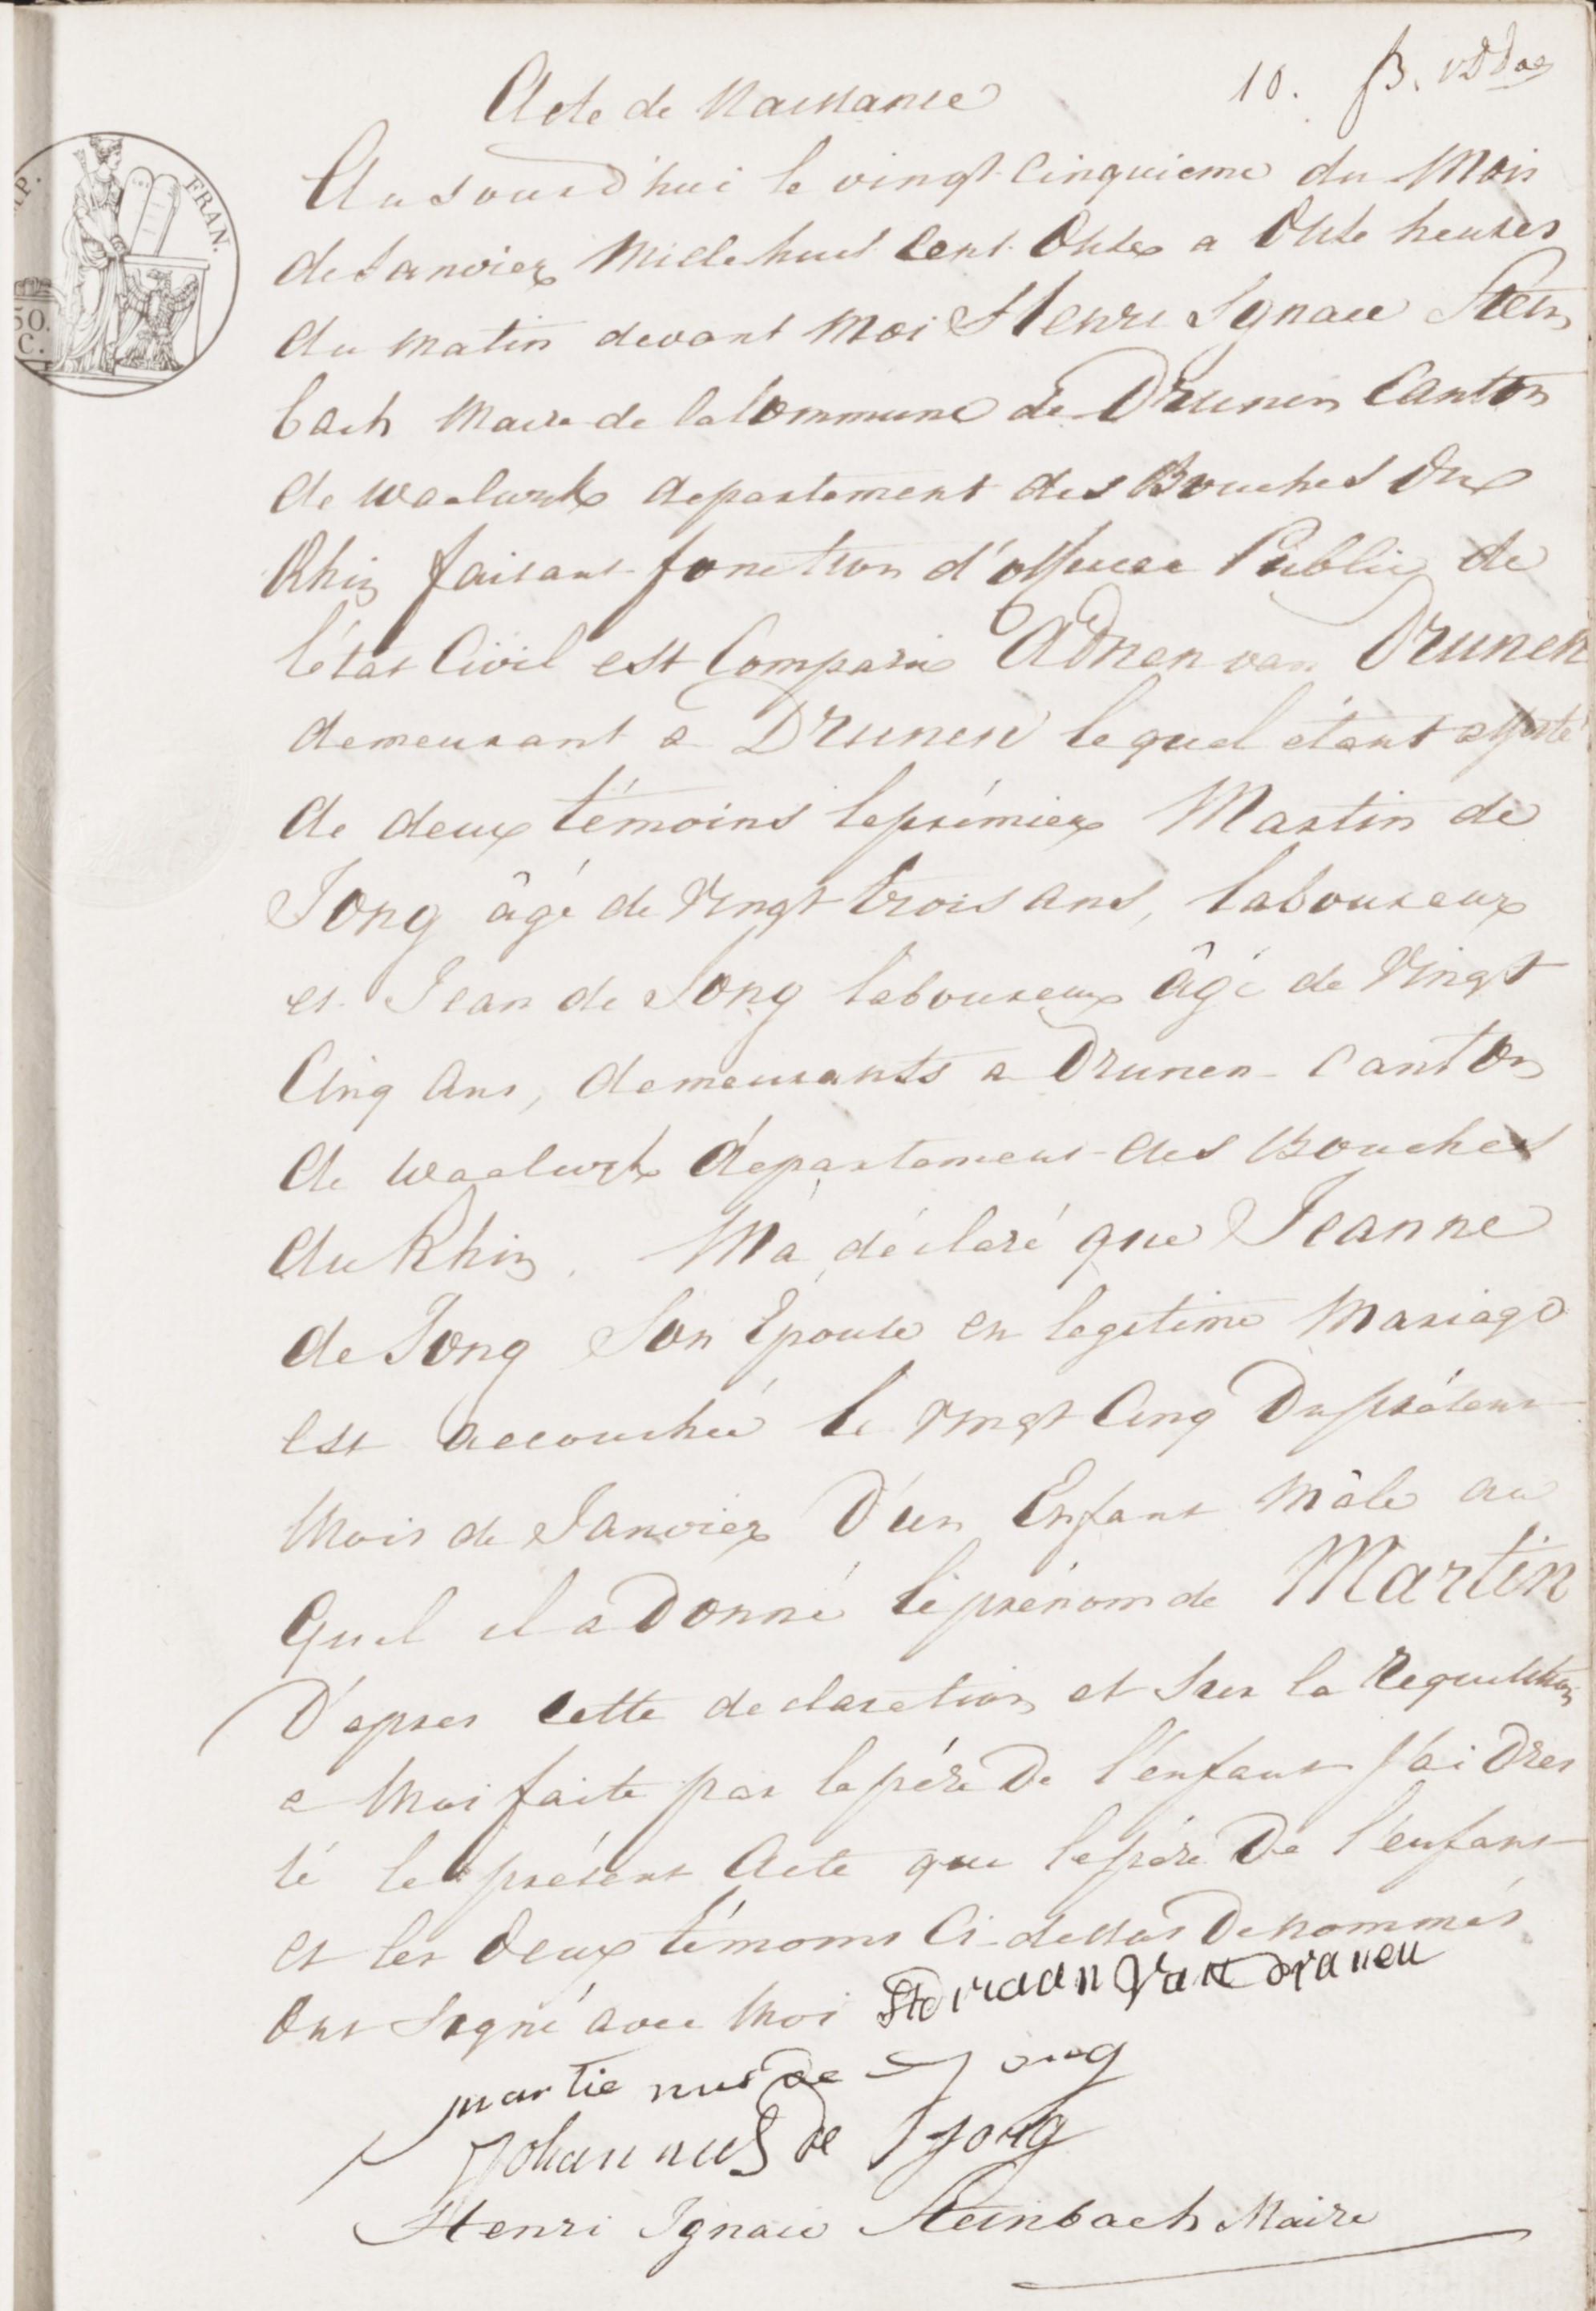 10.
Acte de Naissance
Aujourd'hui le vingt-Cinquieme du Mois
de Janvier Mille huit Cent Onze a Onze heures
du matin devant moi Henri Ignace Stein
bach Maire de la Commune de Drunen Canton
de Waalwyk departement des Bouches du
Rhin faisant fonction d'officier Public de
l'état Civil est Comparu Adrien van Drunen
demeurant a Drunen lequel étant assisté
de deux témoins le prémier Martin de
Jong âgé de Vingt trois ans, laboureur
et Jean de Jong laboureur âgé de Vingt
Cinq Ans, demeurants a Drunen Canton
de Waalwyk département des Bouches
du Rhin. M'a déclaré que Jeanne
de Jong Son Epouse en legitime Mariage
est accouchée le vingt Cinq Du présent
Mois de Janvier D'un Enfant Mâle au
Quel il a Donné le prénom de Martin
D'apres Cette declaration et Sur la requisition
a Moi faite par le pére De l'enfant J'ai Dres
sé le présent Acte que le pére De l'enfant
et les deux témoins Ci-dessus Denommés
Ont Signé avec Moi Adriaan Van drunen
martie nus de Jong
Johannus de Jong
Henri Ignace Steinbach Maire
P.
FRAN.
50.
C.